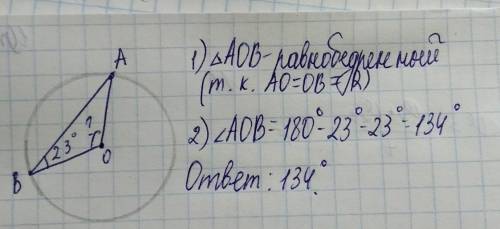 A
?
23°
O
B
1) △AOB - равнобедренный
(т. к. AO=OB=R)
2) ∠AOB = 180° - 23° - 23° = 134°
Ответ: 134°.